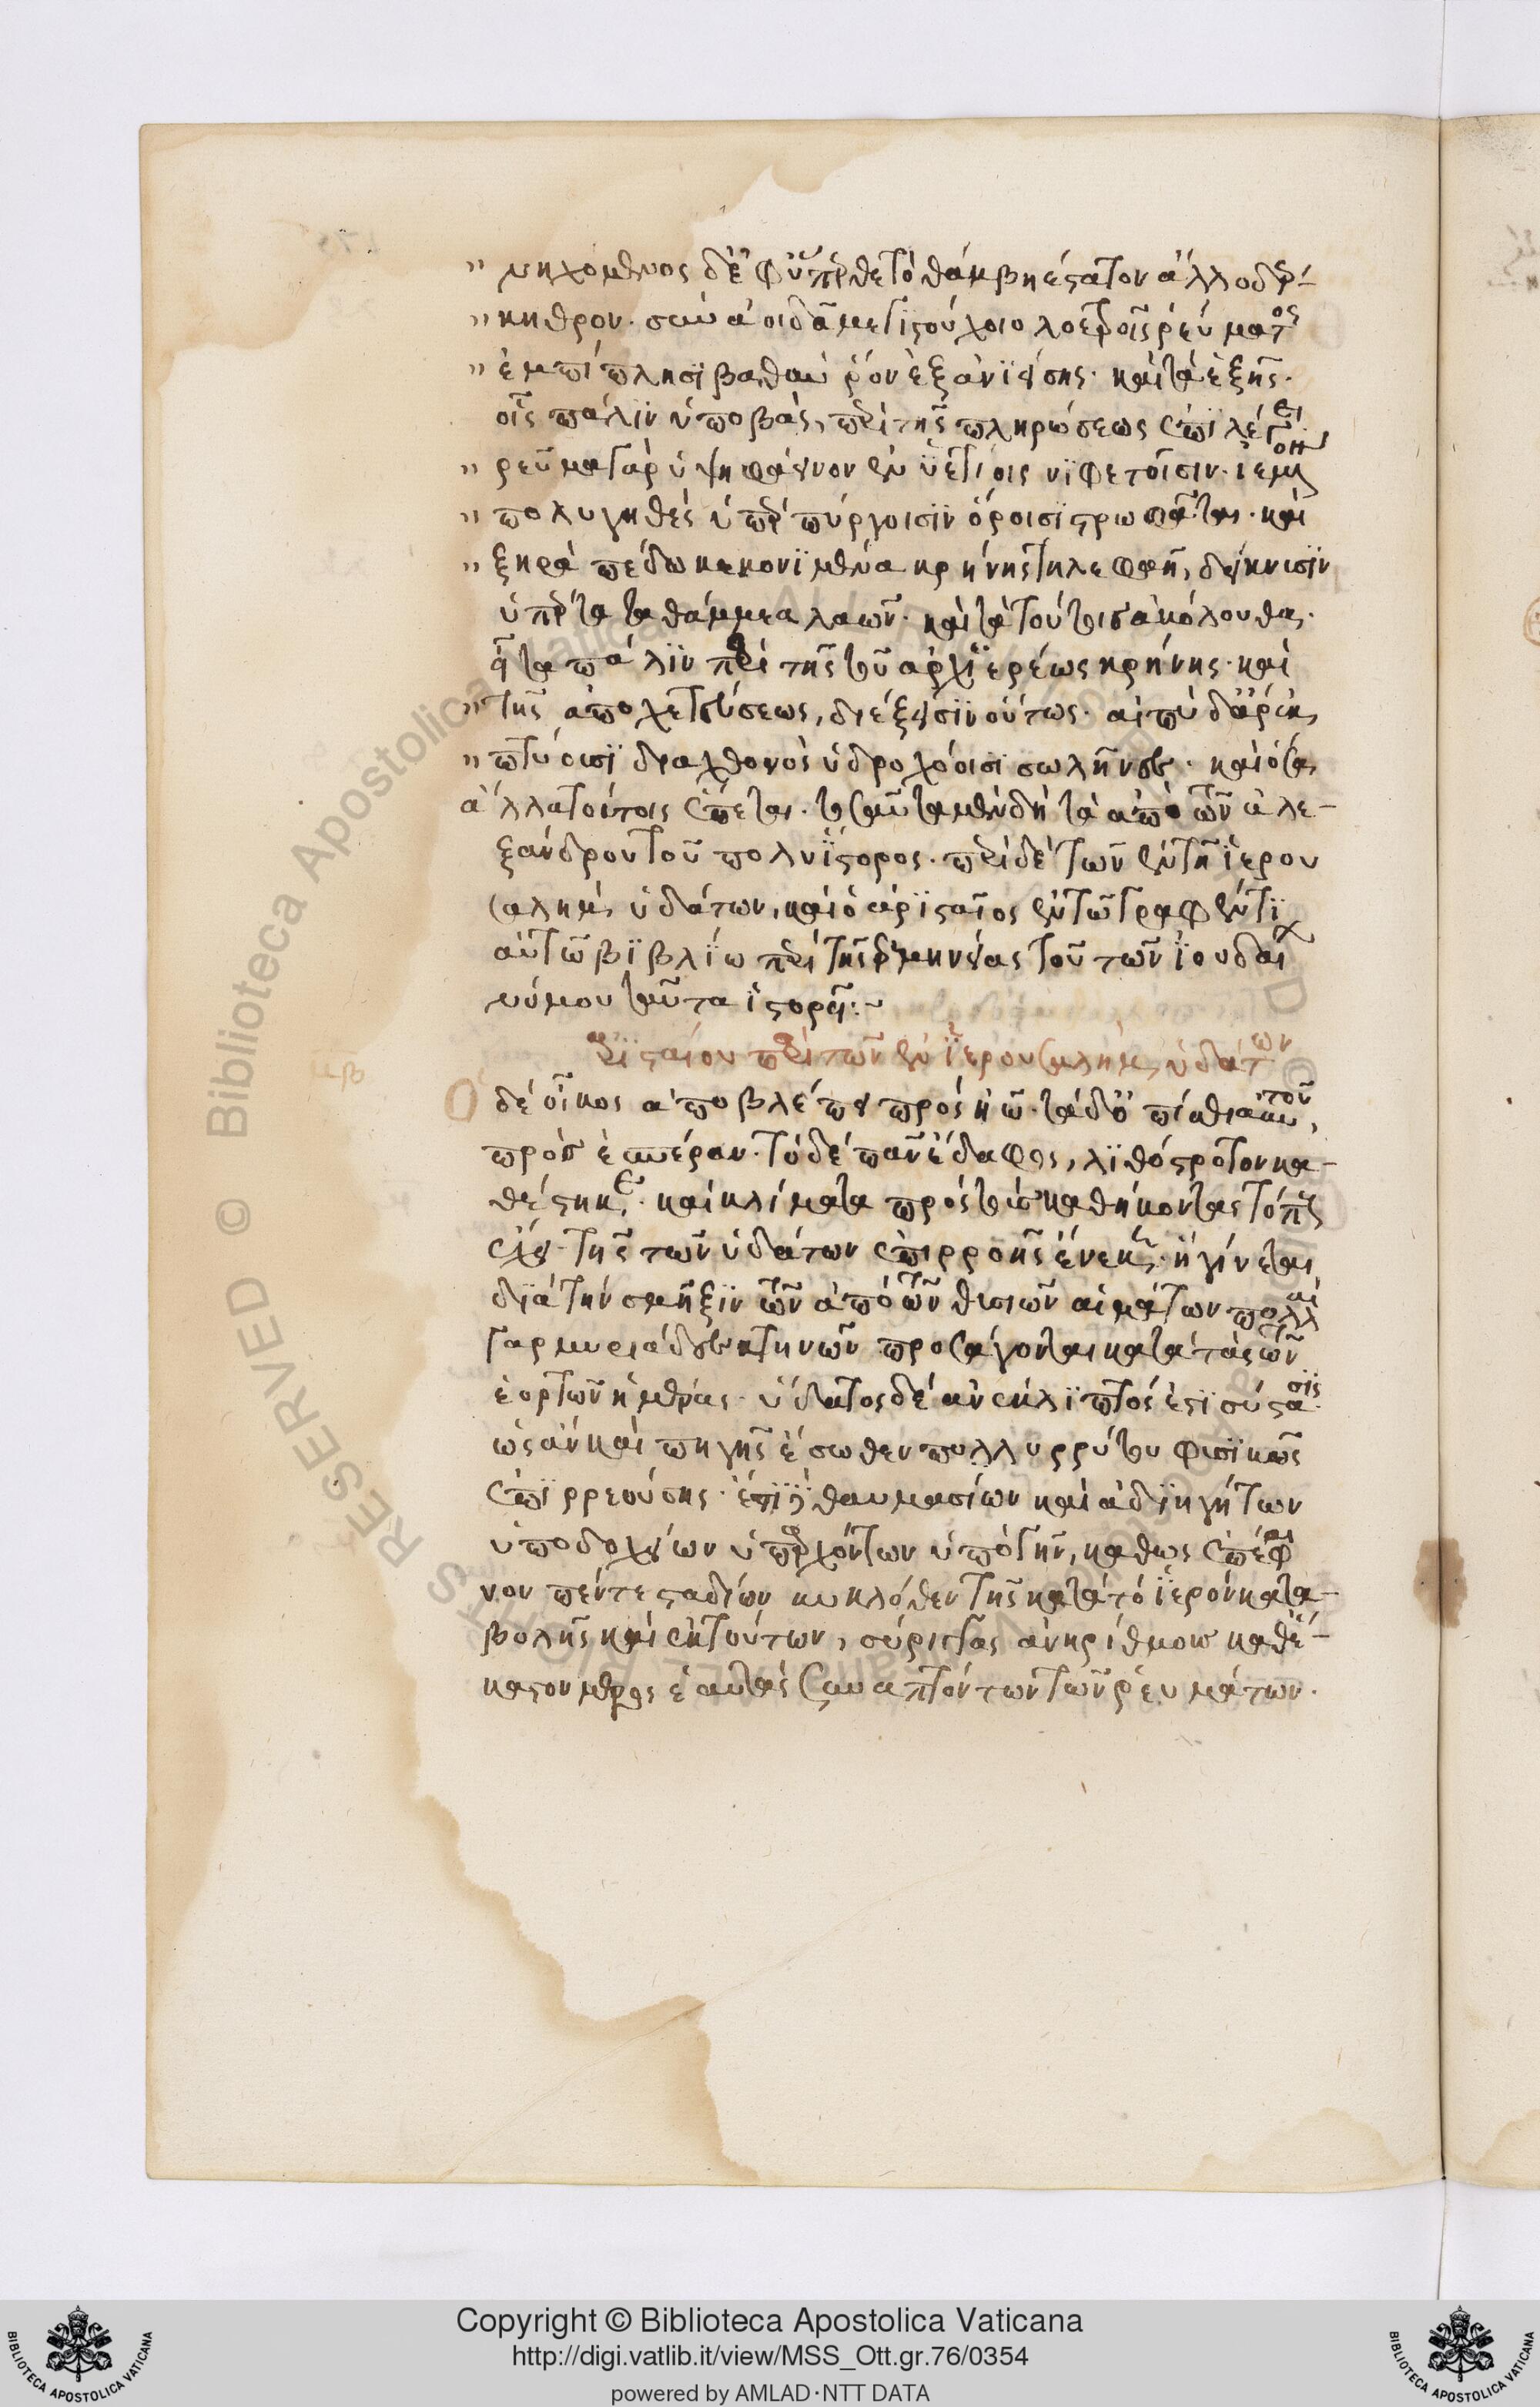 " νηχομενος δ' ἐφύπερθε τὸ θάμβηέστατον ἄλλο δερ-
" κηθρον. συναοιδᾶ μεγιστούχοιο λοετροῖς ῥεύματος
" ἐμπίπλησϊ βαθὺν ῥόον ἐξανϊείσης. καὶ τὰ ἑξῆς.
οἷς πάλϊν ὑποβὰς, περὶ τῆς πληρώσεως ἐπϊλέγει
" ρεῦμα γὰρ ὑψηφάεννον ἐν ὑετίοις νϊφετοῖσιν. ἱεμένου
" πολυγηθὲς ὑπὲρ πύργοισϊν ὄροισϊ στρωφᾶται. καὶ
" ξηρὰ πέδω κεκονϊμένα κρήνης τηλεφαῆ, δείκνυσϊν
ὑπέρτατα θάμμεα λαῶν. καὶ τὰ τούτοις ἀκόλουθα.
εἶτα πάλϊν περὶ τῆς τοῦ ἀρχϊερέως κρήνης. καὶ
" τῆς ἀποχετεύσεως, διέξεισϊν οὕτως. αἰπὺ δ' ἄρ' ἐκ
" πτύουσϊ διαχθονὸς ὑδροχόοισϊ σωλῆνες. καὶ ὅσα
ἄλλα τούτοις ἕπεται. τοσαῦτα μὲν δὴ τὰ ἀπὸ τῶν ἀλε-
ξάνδρου τοῦ πολυΐστορος. περὶ δὲ τῶν ἐν τῆ ϊερου
σαλὴμ ὑδάτων, καὶ ὁ ἀρϊσταῖος ἐν τῶ γραφέντϊ
αὐτῶ βϊβλίω περὶ τῆς ἑρμηνείας τοῦ τῶν ϊουδαϊκ
νόμου ταῦτα ϊστορεῖ:~
αρϊσταίου περὶ τῶν ἐν ϊερουσαλὴμ ὑδάτων
μβ
Ὁ δὲ οἶκος ἀποβλέπει πρὸς ἠῶ. τὰ δ' ὀπίσθια αὐτοῦ,
πρὸς ἑσπέραν. τὸ δὲ πᾶν ἔδαφος, λϊθόστροτον κα-
θέστηκε. καὶ κλίματα πρὸς τοὺς καθήκοντας τόπους
ἔχει. τῆς τῶν ὑδάτων ἐπιρροῆς ἕνεκεν. ἣ γίνεται
διὰ τὴν σμῆξϊν τῶν ἀπὸ τῶν θυσιῶν αἱμάτων πολλαὶ
γὰρ μυριάδες κτηνῶν προσάγονται κατὰ τὰς τῶν
ἑορτῶν ἡμέρας. ὕδατος δὲ ἀνέκλϊπτός ἐστϊ σύστασϊς.
ὡς ἂν καὶ πηγῆς ἔσωθεν πολλυρρύτου φυσϊκῶς
ἐπϊρρεούσης. ἔτϊ δὲ θαυμασίων καὶ ἀδϊηγήτων
ὑποδοχείων ὑπαρχόντων ὑπὸ γῆν, καθὼς ἐπέφαι
νον πέντε σταδίων κυκλόθεν τῆς κατὰ τὸ ϊερὸν κατα-
βολῆς καὶ ἐκ τούτων, σύριγγας ἀνηρίθμους καθ' ἕ-
καστον μέρος ἑαυτὰς συναπτόντων τῶν ῥευμάτων.
Copyright © Biblioteca Apostolica Vaticana
http://digi.vatlib.it/view/MSS_Ott.gr.76/0354
powered by AMLAD·NTT DATA